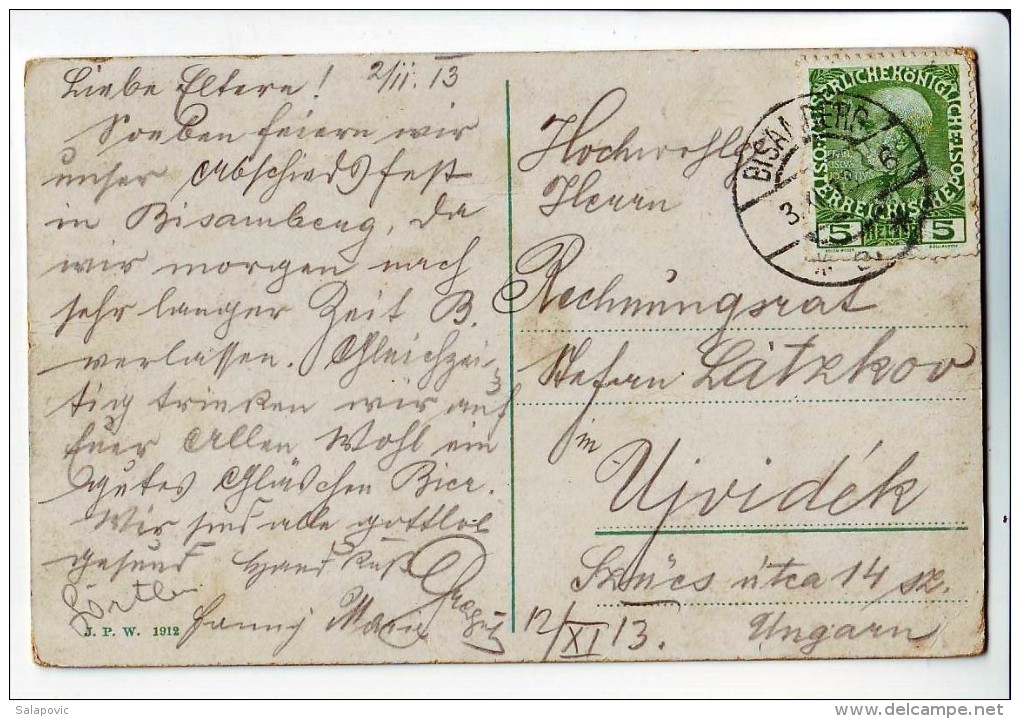 Liebe Eltern! 2/II. 13
Soeben feiern wir
unser Abschiedsfest
in Bisamberg, da
wir morgen nach
sehr langer Zeit B.
verlassen. Gleichzei-
tig trinken wir auf
Euer Allen Wohl ein
gutes Gläschen Bier.
Wir sind alle gottlob
gesund Handkuß
Fanny Maria
J. P. W. 1912
Hochwohlg
Herrn
Rechnungsrat
Stefan Látzkov
in
Ujvidék
Szücs útca 14 sz.
Ungarn
12/XI 13.
BISAMBERG
3
KAISERLICHEKÖNIGLICHE
ÖSTERREICHISCHE POST
5 HELLER 5
Salapovic